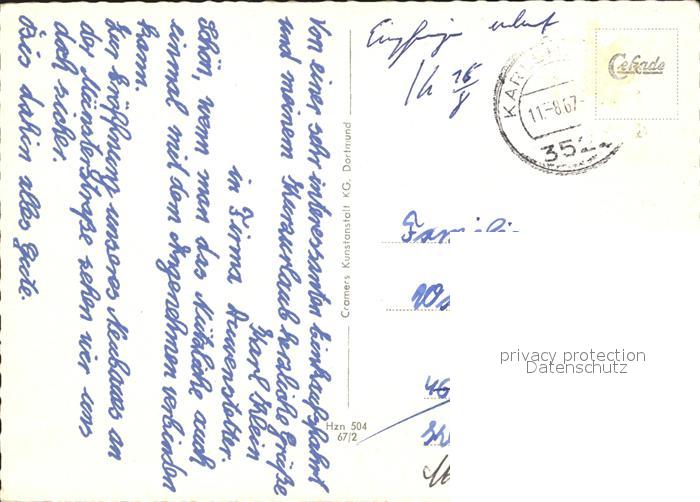 Von einer sehr interessanten Einkaufsfahrt
und meinem Kurzurlaub herzliche Grüße
Karl Klein
in Firma
Schön, wenn man das Nützliche auch
einmal mit dem Angenehmen verbinden
kann.
Zur Eröffnung unseres Neubaus an
der Münsterstraße sehen wir uns
doch sicher.
Bis dahin alles Gute.
Cramers Kunstanstalt KG, Dortmund
Hzn 504
67/2
16/8
Cekade
KARL
11.-8.67-
352
Famili
46
privacy protection
Datenschutz